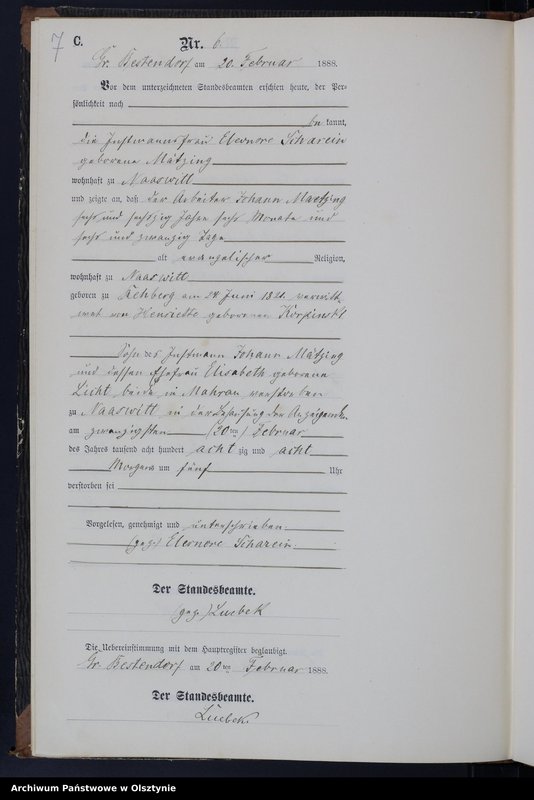 7
C.
Nr. 6
Gr. Bestendorf am 20. Februar 1888.
Vor dem unterzeichneten Standesbeamten erschien heute, der Per-
sönlichkeit nach
be kannt,
die Instmannsfrau Elernore Scharein
geborene Mätzing
wohnhaft zu Naaswitt
und zeigte an, daß der Arbeiter Johann Maetzing
sechs und sechzig Jahre sechs Monate und
sechs und zwanzig Tage
alt evangelischer Religion,
wohnhaft zu Naaswitt
geboren zu am 24 Juni 1821. verwitt-
wet von Henriette geborenen Korpinski
Sohn des Instmann Johann Mätzing
und dessen Ehefrau Elisabeth geborene
Licht beide in verstorben
zu Naaswitt in der Behausung der Anzeigenden
am zwanzigsten (20ten) Februar
des Jahres tausend acht hundert acht zig und acht
Morgens um fünf Uhr
verstorben sei
Vorgelesen, genehmigt und unterschrieben
(gez.) Elernore Scharein.
Der Standesbeamte.
(gez.) Luebek
Die Uebereinstimmung mit dem Hauptregister beglaubigt.
Gr. Bestendorf am 20ten Februar 1888.
Der Standesbeamte.
Lüebek
Archiwum Państwowe w Olsztynie